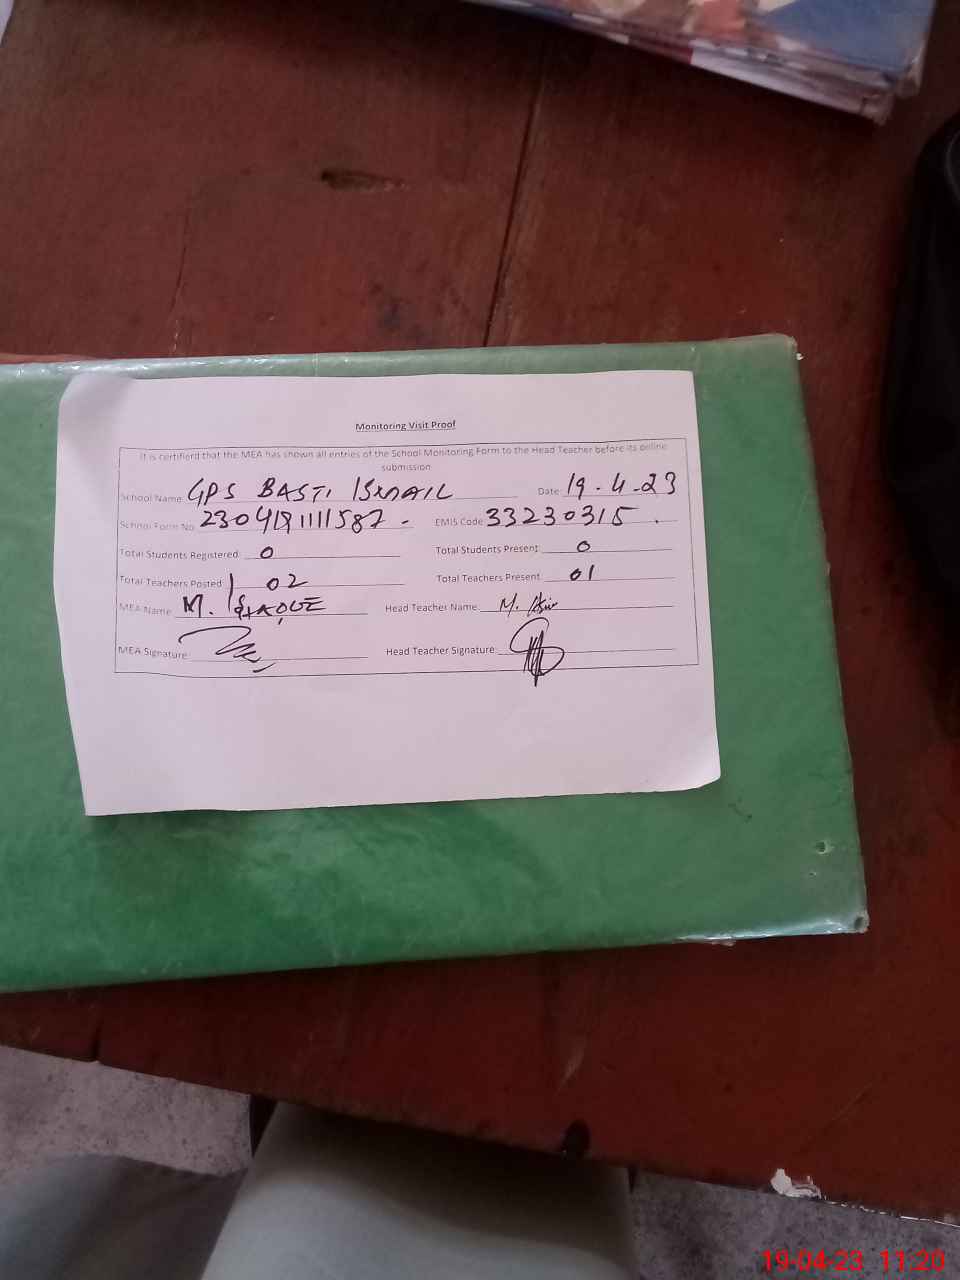 Monitoring Visit Proof
It is certifierd that the MEA has shown all entries of the School Monitoring Form to the Head Teacher before its online
submission
School Name GPS BASTI ISMAIL Date: 19-4-23
School Form No 230419111587 - EMIS Code 33230315
Total Students Registered: 0 Total Students Present: 0
Total Teachers Posted: 02 Total Teachers Present: 01
MEA Name M. ISHAQUE Head Teacher Name M.
MEA Signature: Head Teacher Signature:
19-04-23 11:20